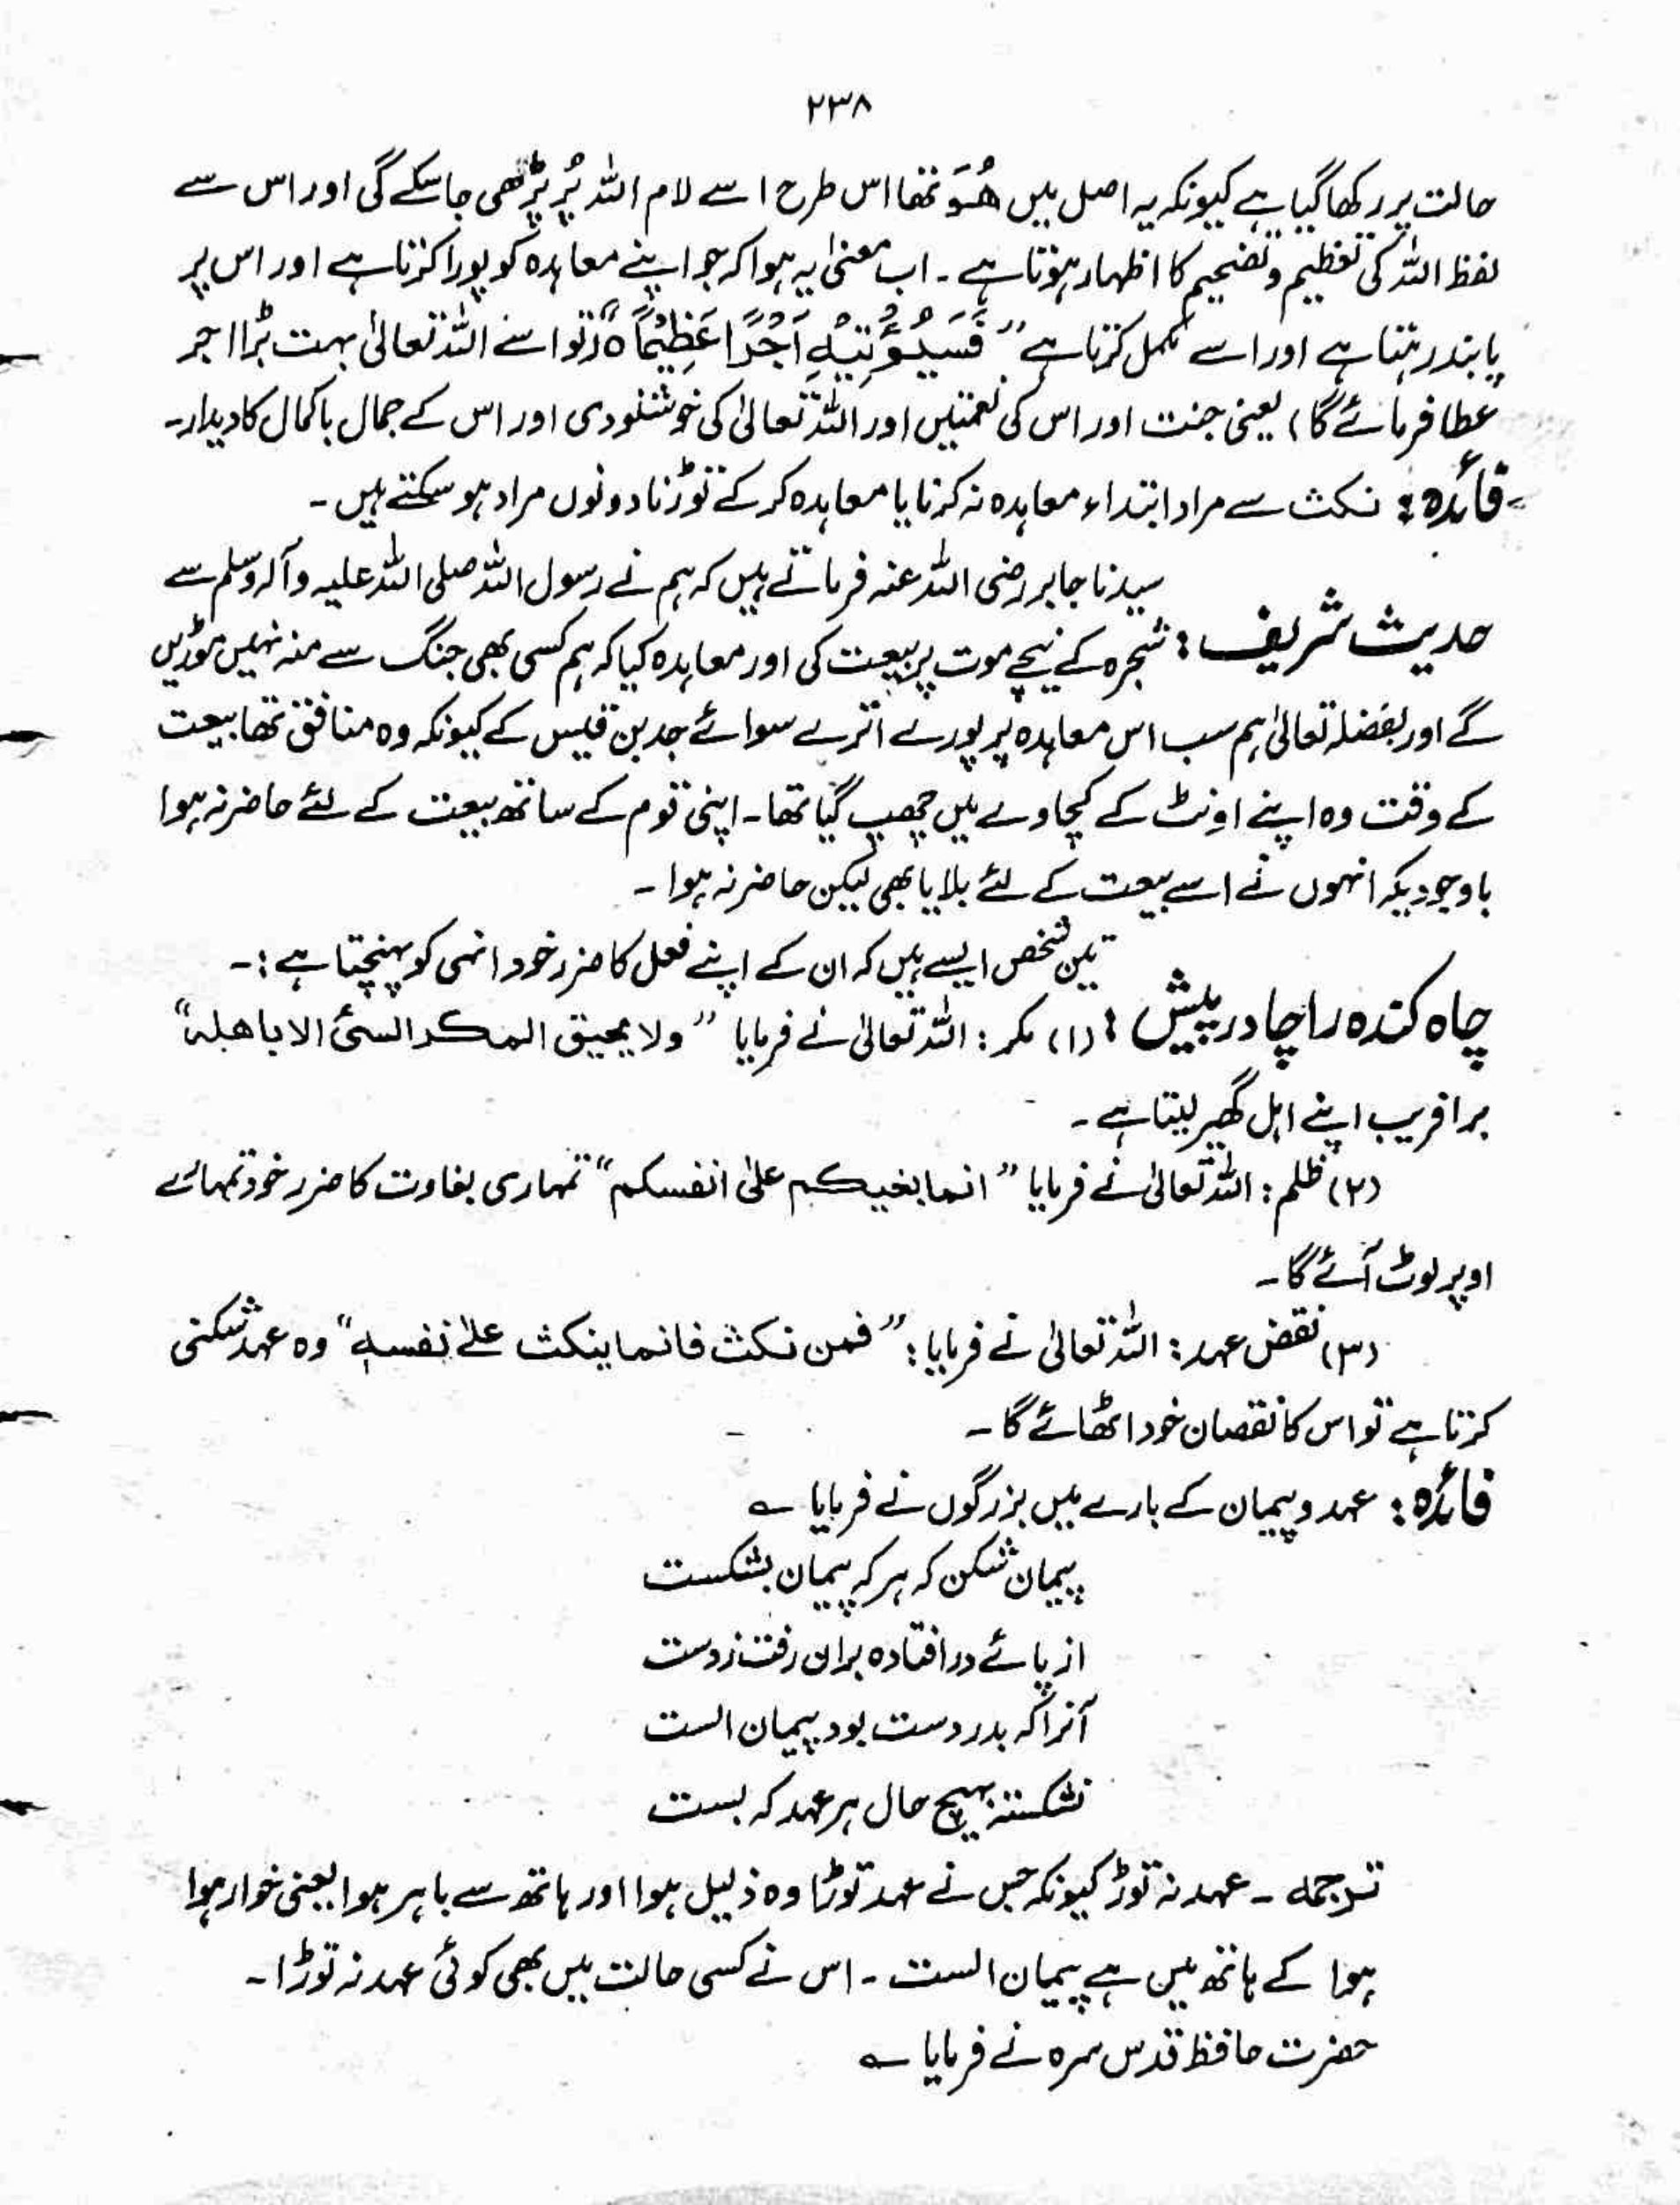 ۲۳۸
حالت پر رکھا گیا ہے کیونکہ یہ اصل میں ھُوَ تھا اس طرح اسے لام اللہ پُر پڑھی جا سکے گی اور اس سے
لفظ اللہ کی تعظیم و تفخیم کا اظہار ہوتا ہے ۔ اب معنیٰ یہ ہوا کہ جو اپنے معاہدہ کو پورا کرتا ہے اور اس پر
پابند رہتا ہے اور اسے مکمل کرتا ہے ”فَسَیُؤْتِیْہِ اَجْرًا عَظِیْمًا ہ“ (تو اسے اللہ تعالیٰ بہت بڑا اجر
عطا فرمائے گا) یعنی جنت اور اس کی نعمتیں اور اللہ تعالیٰ کی خوشنودی اور اس کے جمال باکمال کا دیدار۔
فائدہ : نکث سے مراد ابتداء معاہدہ نہ کرنا یا معاہدہ کر کے توڑنا دونوں مراد ہو سکتے ہیں ۔
سیدنا جابر رضی اللہ عنہ فرماتے ہیں کہ ہم نے رسول اللہ صلی اللہ علیہ وآلہ وسلم سے
حدیث شریف : شجرہ کے نیچے موت پر بیعت کی اور معاہدہ کیا کہ ہم کسی بھی جنگ سے منہ نہیں موڑیں
گے اور بفضلہ تعالیٰ ہم سب اس معاہدہ پر پورے اترے سوائے جد بن قیس کے کیونکہ وہ منافق تھا بیعت
کے وقت وہ اپنے اونٹ کے کچاوے میں چھپ گیا تھا۔ اپنی قوم کے ساتھ بیعت کے لئے حاضر نہ ہوا
باوجودیکہ انہوں نے اسے بیعت کے لئے بلایا بھی لیکن حاضر نہ ہوا ۔
تین شخص ایسے ہیں کہ ان کے اپنے فعل کا ضرر خود انہی کو پہنچتا ہے :۔
چاہ کندہ را چاہ درپیش : (۱) مکر : اللہ تعالیٰ نے فرمایا ”ولا یحیق المکر السیئ الا باھلہ“
برا فریب اپنے اہل گھیر لیتا ہے ۔
(۲) ظلم : اللہ تعالیٰ نے فرمایا ”انما بغیکم علیٰ انفسکم“ تمہاری بغاوت کا ضرر خود تمہارے
اوپر لوٹ آئے گا ۔
(۳) نقض عہد : اللہ تعالیٰ نے فرمایا : ”فمن نکث فانما ینکث علےٰ نفسہ“ وہ عہد شکنی
کرتا ہے تو اس کا نقصان خود اٹھائے گا ۔
فائدہ : عہد و پیمان کے بارے میں بزرگوں نے فرمایا ؎
پیمان شکن کہ ہر کہ پیمان بشکست
از پائے در افتادہ بران رفت ز دست
آنرا کہ بدر دست بود پیمان الست
نشکستہ بہیچ حال ہر عہد کہ بست
ترجمہ ۔ عہد نہ توڑ کیونکہ جس نے عہد توڑا وہ ذلیل ہوا اور ہاتھ سے باہر ہوا یعنی خوار ہوا
ہوا کے ہاتھ میں ہے پیمان الست ۔ اس نے کسی حالت میں بھی کوئی عہد نہ توڑا ۔
حضرت حافظ قدس سرہ نے فرمایا ؎